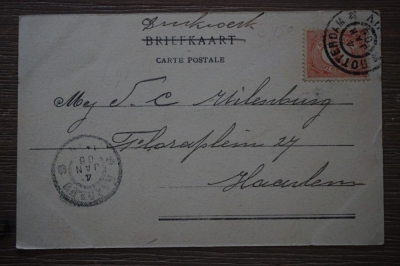 Drukwerk
BRIEFKAART
CARTE POSTALE
ROTTERDAM
Mej T. C Uilenburg
Floraplein 27
Haarlem
4
JAN